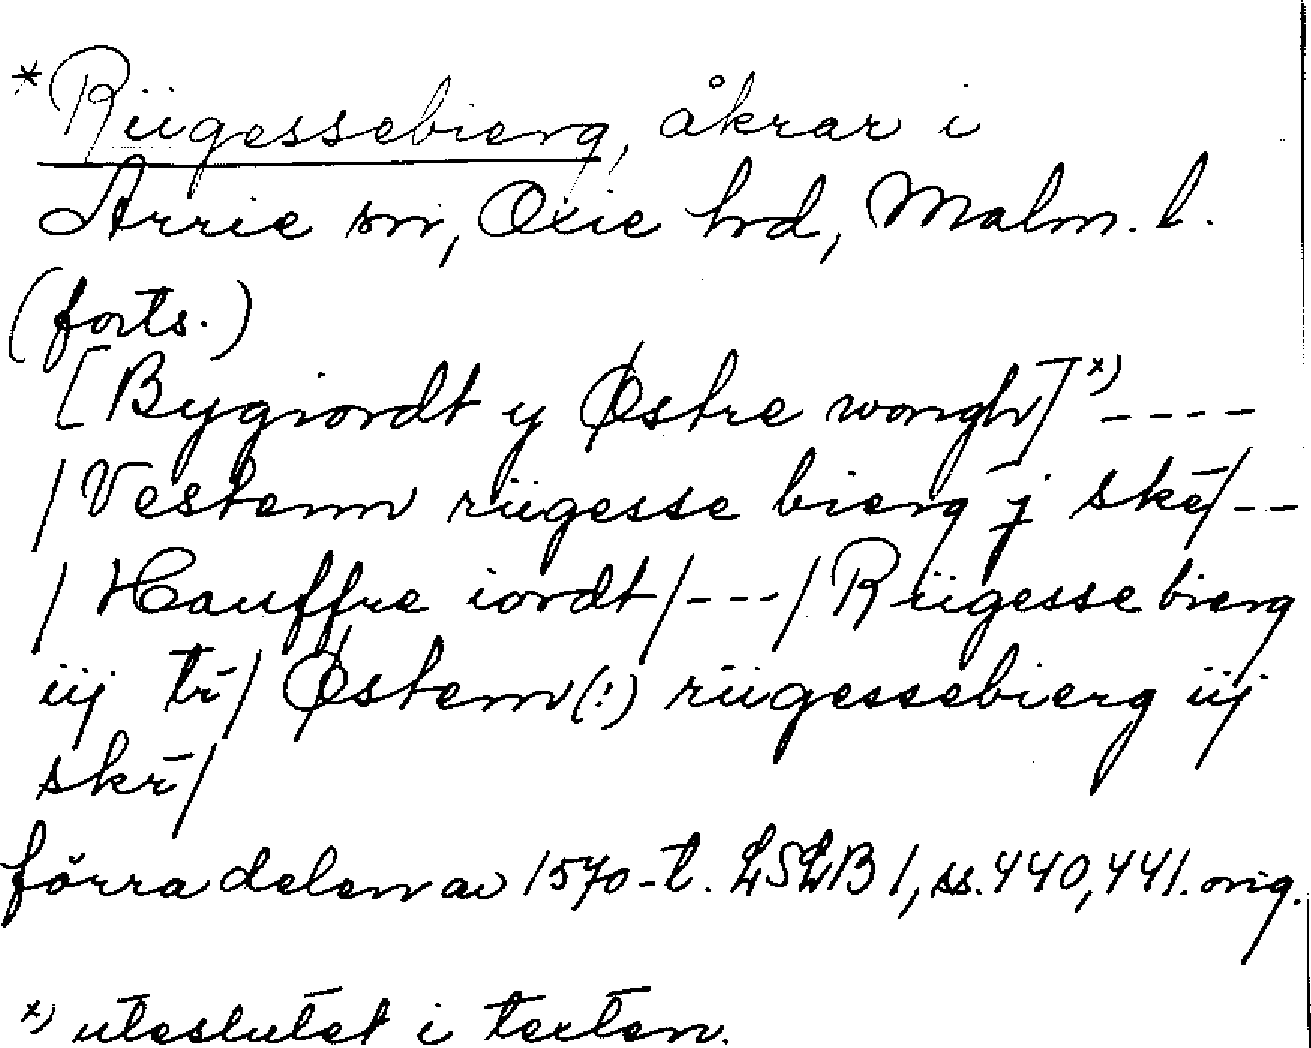 *Rügessebierg, åkrar i
Arrie sn, Oxie hd, Malm. l.
(forts.)
[Bygiordt y Østre wongh]x) ----
/Vestenn rügesse bierg j ske/--
/Hauffre iordt/---/Rügesse bierg
iij tr/ Østenn(:) rügessebierg iij
skr/
förra delen av 1570-t. LSLB1, ss. 440, 441. orig.
x) uteslutet i texten.